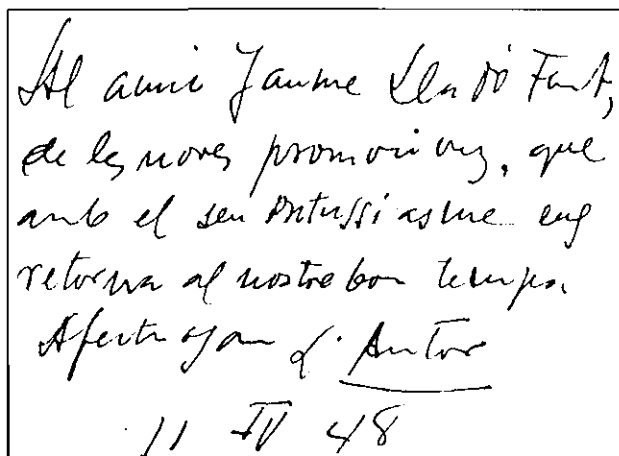 Al amic Jaume Lladó Font,
de les noves promocions, que
amb el seu entussiasme ens
retorna al nostre bon temps.
Afectuosam L'Autor
11 IV 48